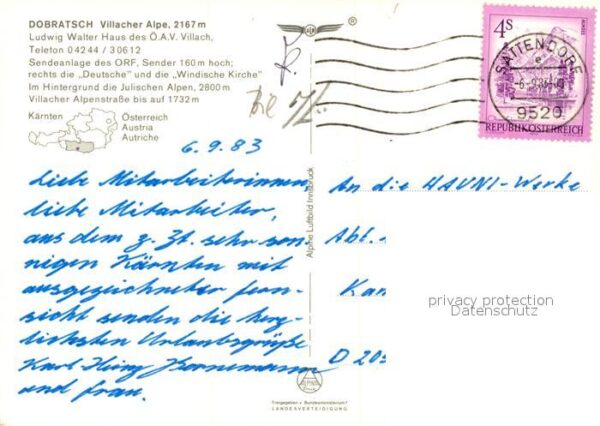 DOBRATSCH Villacher Alpe, 2167 m
Ludwig Walter Haus des Ö.A.V. Villach,
Telefon 04244 / 30612
Sendeanlage des ORF, Sender 160 m hoch;
rechts die „Deutsche" und die „Windische Kirche"
Im Hintergrund die Julischen Alpen, 2800 m
Villacher Alpenstraße bis auf 1732 m
Kärnten
Österreich
Austria
Autriche
6.9.83
Liebe Mitarbeiterinnen,
liebe Mitarbeiter,
aus dem z. Zt. sehr son-
nigen Kärnten mit
ausgezeichneter Fern-
sicht senden die herz-
lichsten Urlaubsgrüße
Karl-Heinz
und Frau.
Alpine Luftbild Innsbruck
ALPINE
Freigegeben v. Bundesministerium f.
LANDESVERTEIDIGUNG
4S
SATTENDORF
9520
REPUBLIK ÖSTERREICH
An die HAUNI-Werke
Abt.
Kam
D 205
privacy protection
Datenschutz